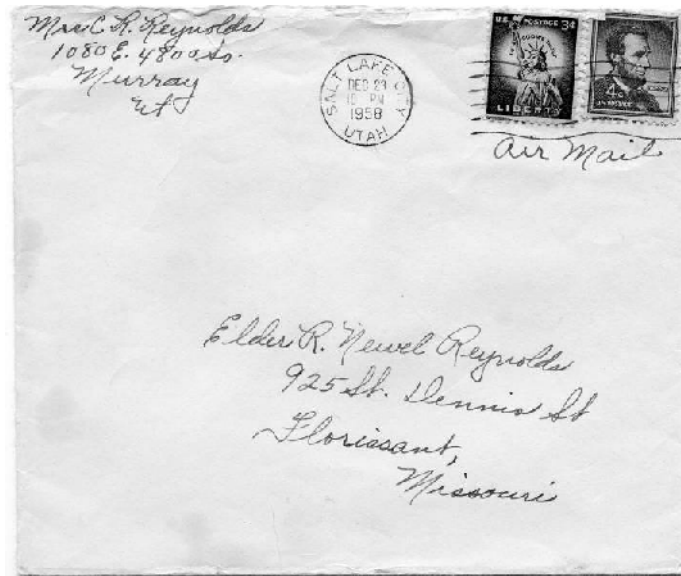 Mrs C. R. Reynolds
1080 E. 4800 So.
Murray
Ut
SALT LAKE CITY
DEC 23
PM
1958
UTAH
U.S. POSTAGE 3¢
IN GOD WE TRUST
LIBERTY
4¢
Air Mail
Elder R. Newel Reynolds
925 St. Dennis St
Florissant,
Missouri